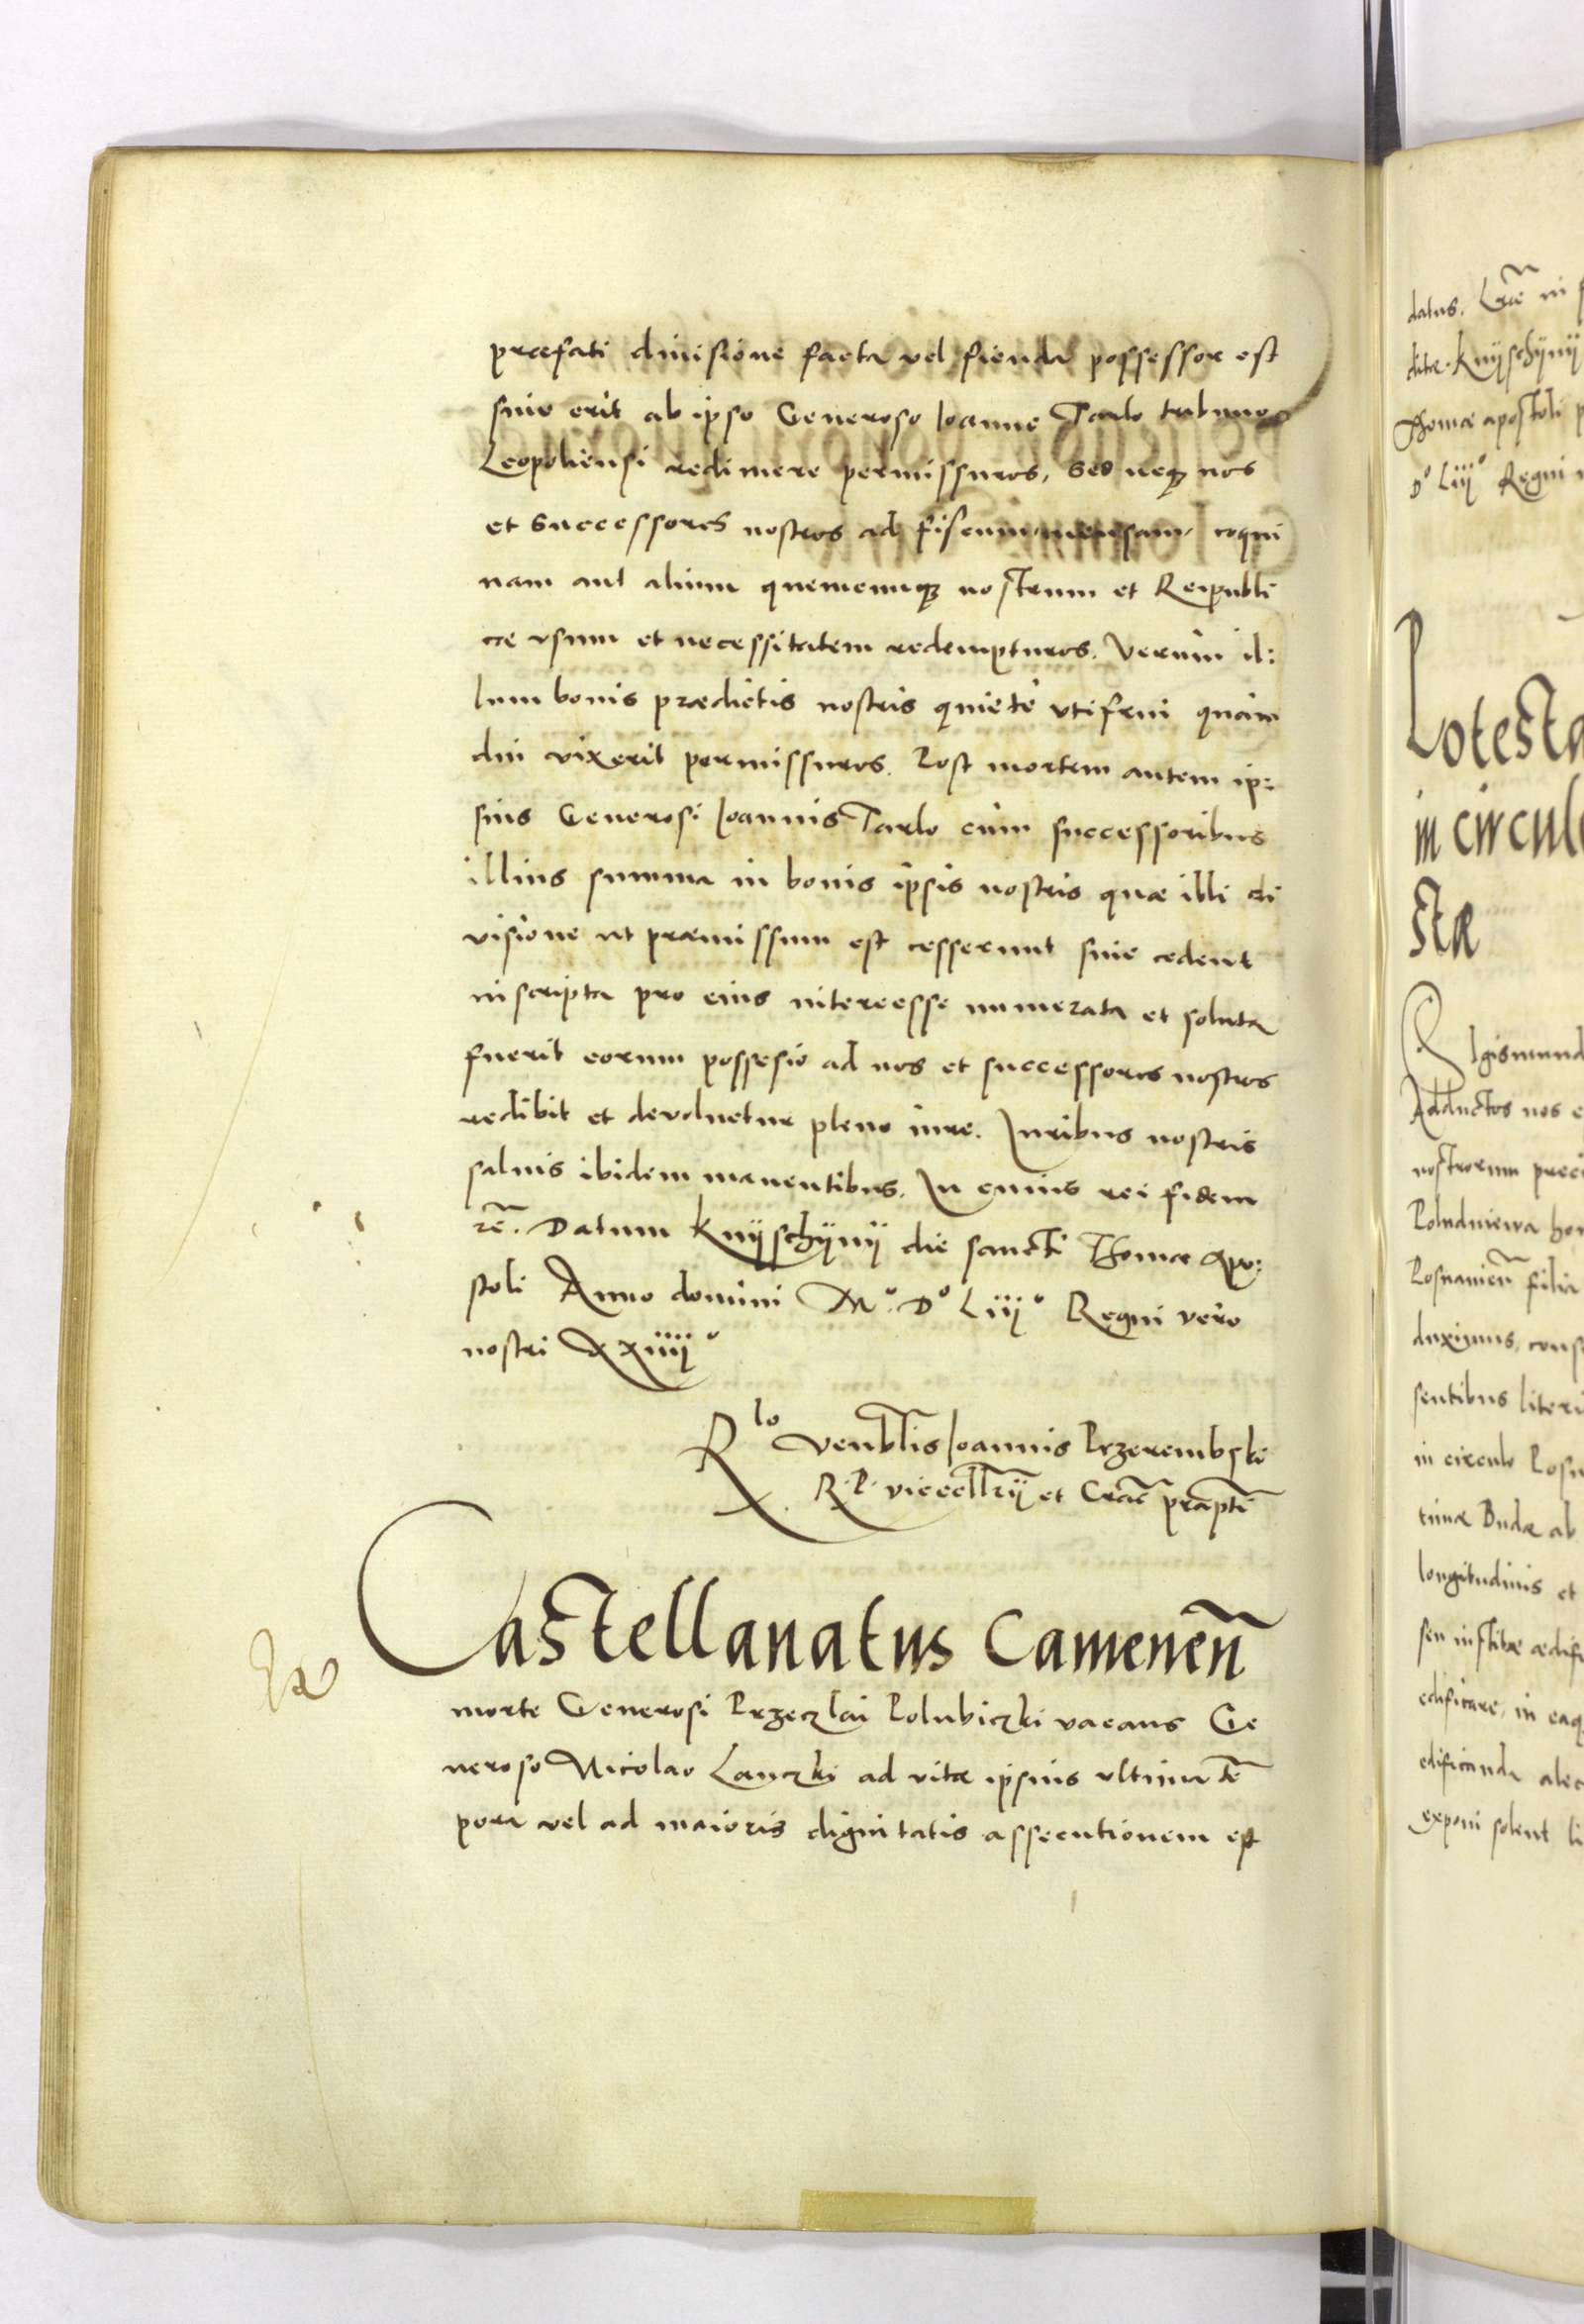 præfati diuisione facta vel fienda possessor est
siue erit ab ipso Generoso Ioanne Tarlo tribuno
Leopoliensi redimere permissuros, sed neqȝ nos
et Successores nostros ad fiscum, mensam, coqui
nam aut alium quemcunqȝ nostrum et Reipubli
cæ vsum et necessitatem redempturos. Verum il:
lum bonis prædictis nostris quiete vti frui quam
diu vixerit permissuros. Post mortem autem ip:
sius Generosi Ioannis Tarlo cum successoribus
illius summa in bonis ipsis nostris quæ illi di
uisione ut præmissum est cesserunt siue cedent
inscripta pro eius intereesse numerata et soluta
fuerit eorum possesio ad nos et successores nostros
redibit et devoluetur pleno iure. Iuribus nostris
saluis ibidem manentibus. In cuius rei fidem
rē. Datum Knÿschÿnÿ die sancti Thomæ Apo:
stoli Anno domini Mº. Dº Liijº Regni vero
nostri XXiiijº
Rlo venblis Ioannis Przerembski
R. P. vicecllrij et Crac̄ præpti
Castellanatus Camenen̄
morte Generosi Przeczlai Polubiczki vacans Ge
neroso Nicolao Lanczki ad vitæ ipsius vltima tē
pora vel ad maioris dignitatis assecutionem est
datus. Lr̄æ in
ditæ. Knÿschÿnÿ
Thomæ apostoli
Dº Liijº Regni
Potesta
in circul
stæ
Sigismund
Adductos nos
nostrorum preci
Poludniewa
Posnanien̄ filia
duximus, cons
sentibus literi
in circulo Posn
timæ Budæ ab
longitudinis et
seu institæ ædifi
edificare, in eaq
edificanda alec
exponi solent li